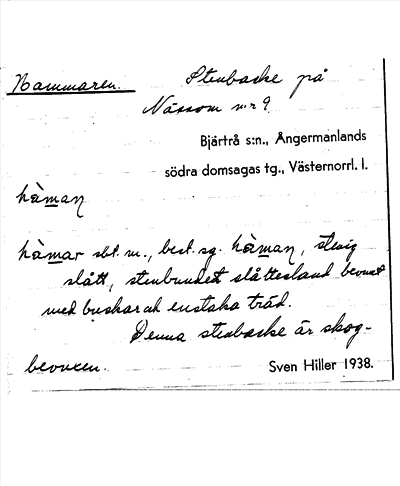 Hammaren. Stenbacke på
Nässom nr 9.
Bjärtrå s:n., Ångermanlands
södra domsagas tg., Västernorrl. l.
hàman
hàmar sbt. m., best. sg. hàman, stenig
slått, stenbundet slåttesland bevuxet
med buskar och enstaka träd.
Denna stenbacke är skog-
bevuxen. Sven Hiller 1938.